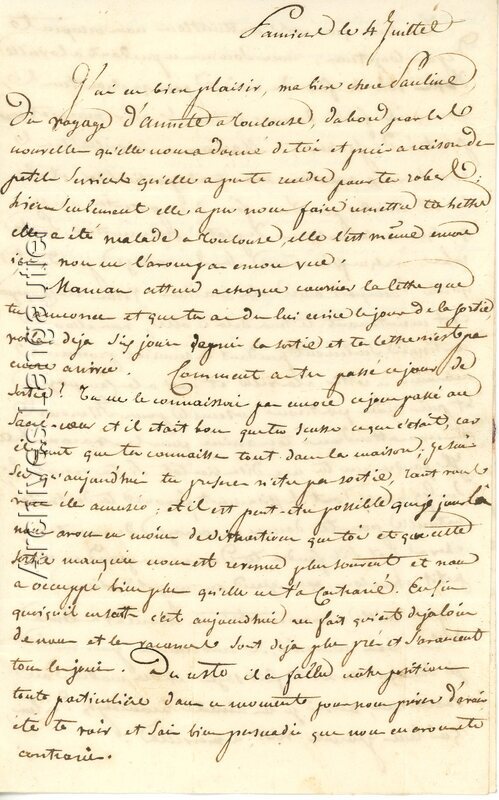 Pamiers le 4 Juillet
J'ai eu bien plaisir, ma bien chere Pauline,
Du voyage d'annette a Toulouse, dabord par les
nouvelles qu'elle nous a donné de toi et puis a raison de
petits services qu'elle a pu te rendre pour tes robes;
hier seulement elle a pu nous faire remettre ta lettre
elle a été malade a Toulouse, elle l'est même encore
ici nous ne l'avons pas encore vue.
Maman attend a chaque courrier la lettre que
tu annonce et que tu as du lui ecrire le jour de la sortie
voila deja six jours depuis la sortie et ta lettre n'est pas
encore arrivée. Comment as tu passé ce jour de
sortie? Tu ne le connaissais pas encore ce jour passé au
Sacré-cœur et il était bon que tu susse ce que c'était, car
il faut que tu connaisse tout dans la maison; je suis
sûr qu'aujourd'hui tu n'es pas sortie, tant
amusée; et il est peut-etre possible que ce jour là
nous avons eu moins de distractions que toi et que cette
sortie manquée nous est revenue plus souvent et nous
a occuppé bien plus qu'elle ne t'a contrarié. Enfin
quoiqu'il en soit c'est aujourd'hui un fait qui est deja loin
de nous et les vacances sont deja plus près et s'avancent
tous les jours. Du reste il a fallu notre position
toute particulière dans ce moment pour nous priver d'avoir
été te voir et sois bien persuadée que nous en avons été
contrariés.
Archives Languette